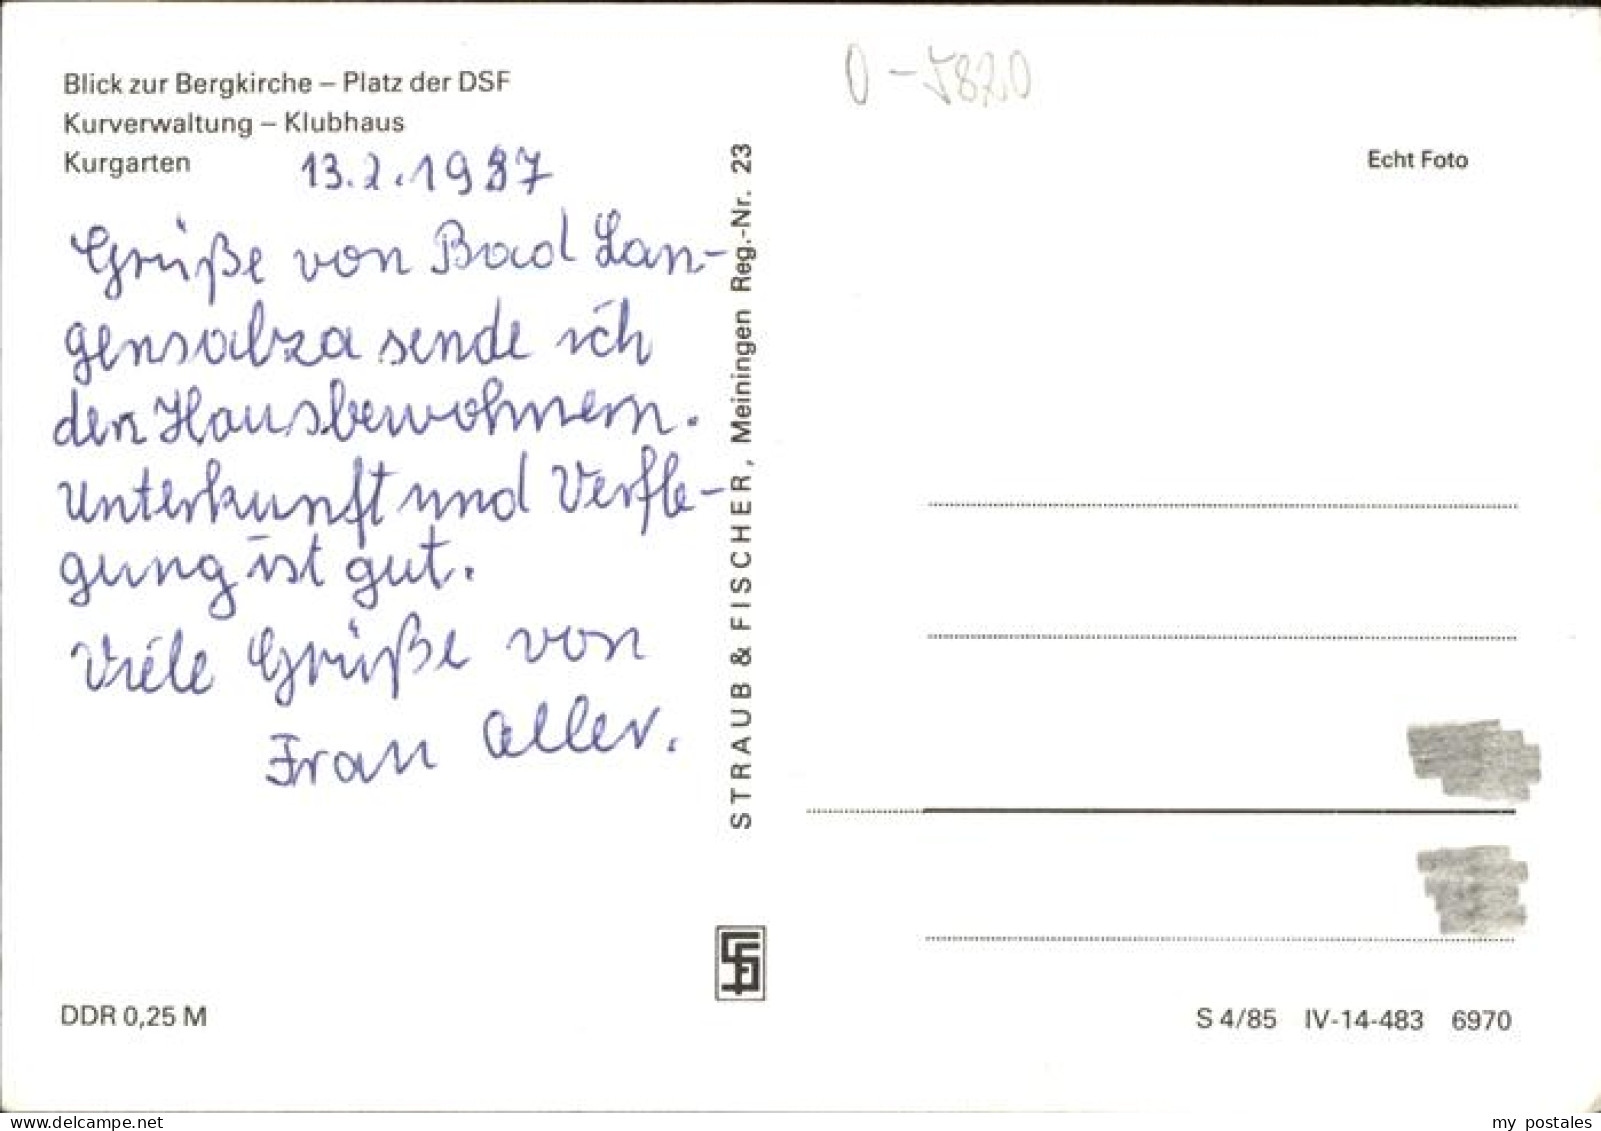 Blick zur Bergkirche – Platz der DSF
Kurverwaltung – Klubhaus
Kurgarten
13.2.1987
Grüße von Bad Lan-
gensalza sende ich
den Hausbewohnern.
Unterkunft und Verfle-
gung ist gut.
Viele Grüße von
Frau Aller.
DDR 0,25 M
STRAUB & FISCHER, Meiningen Reg.-Nr. 23
O-5820
Echt Foto
S 4/85 IV-14-483 6970
www.delcampe.net
my_postales